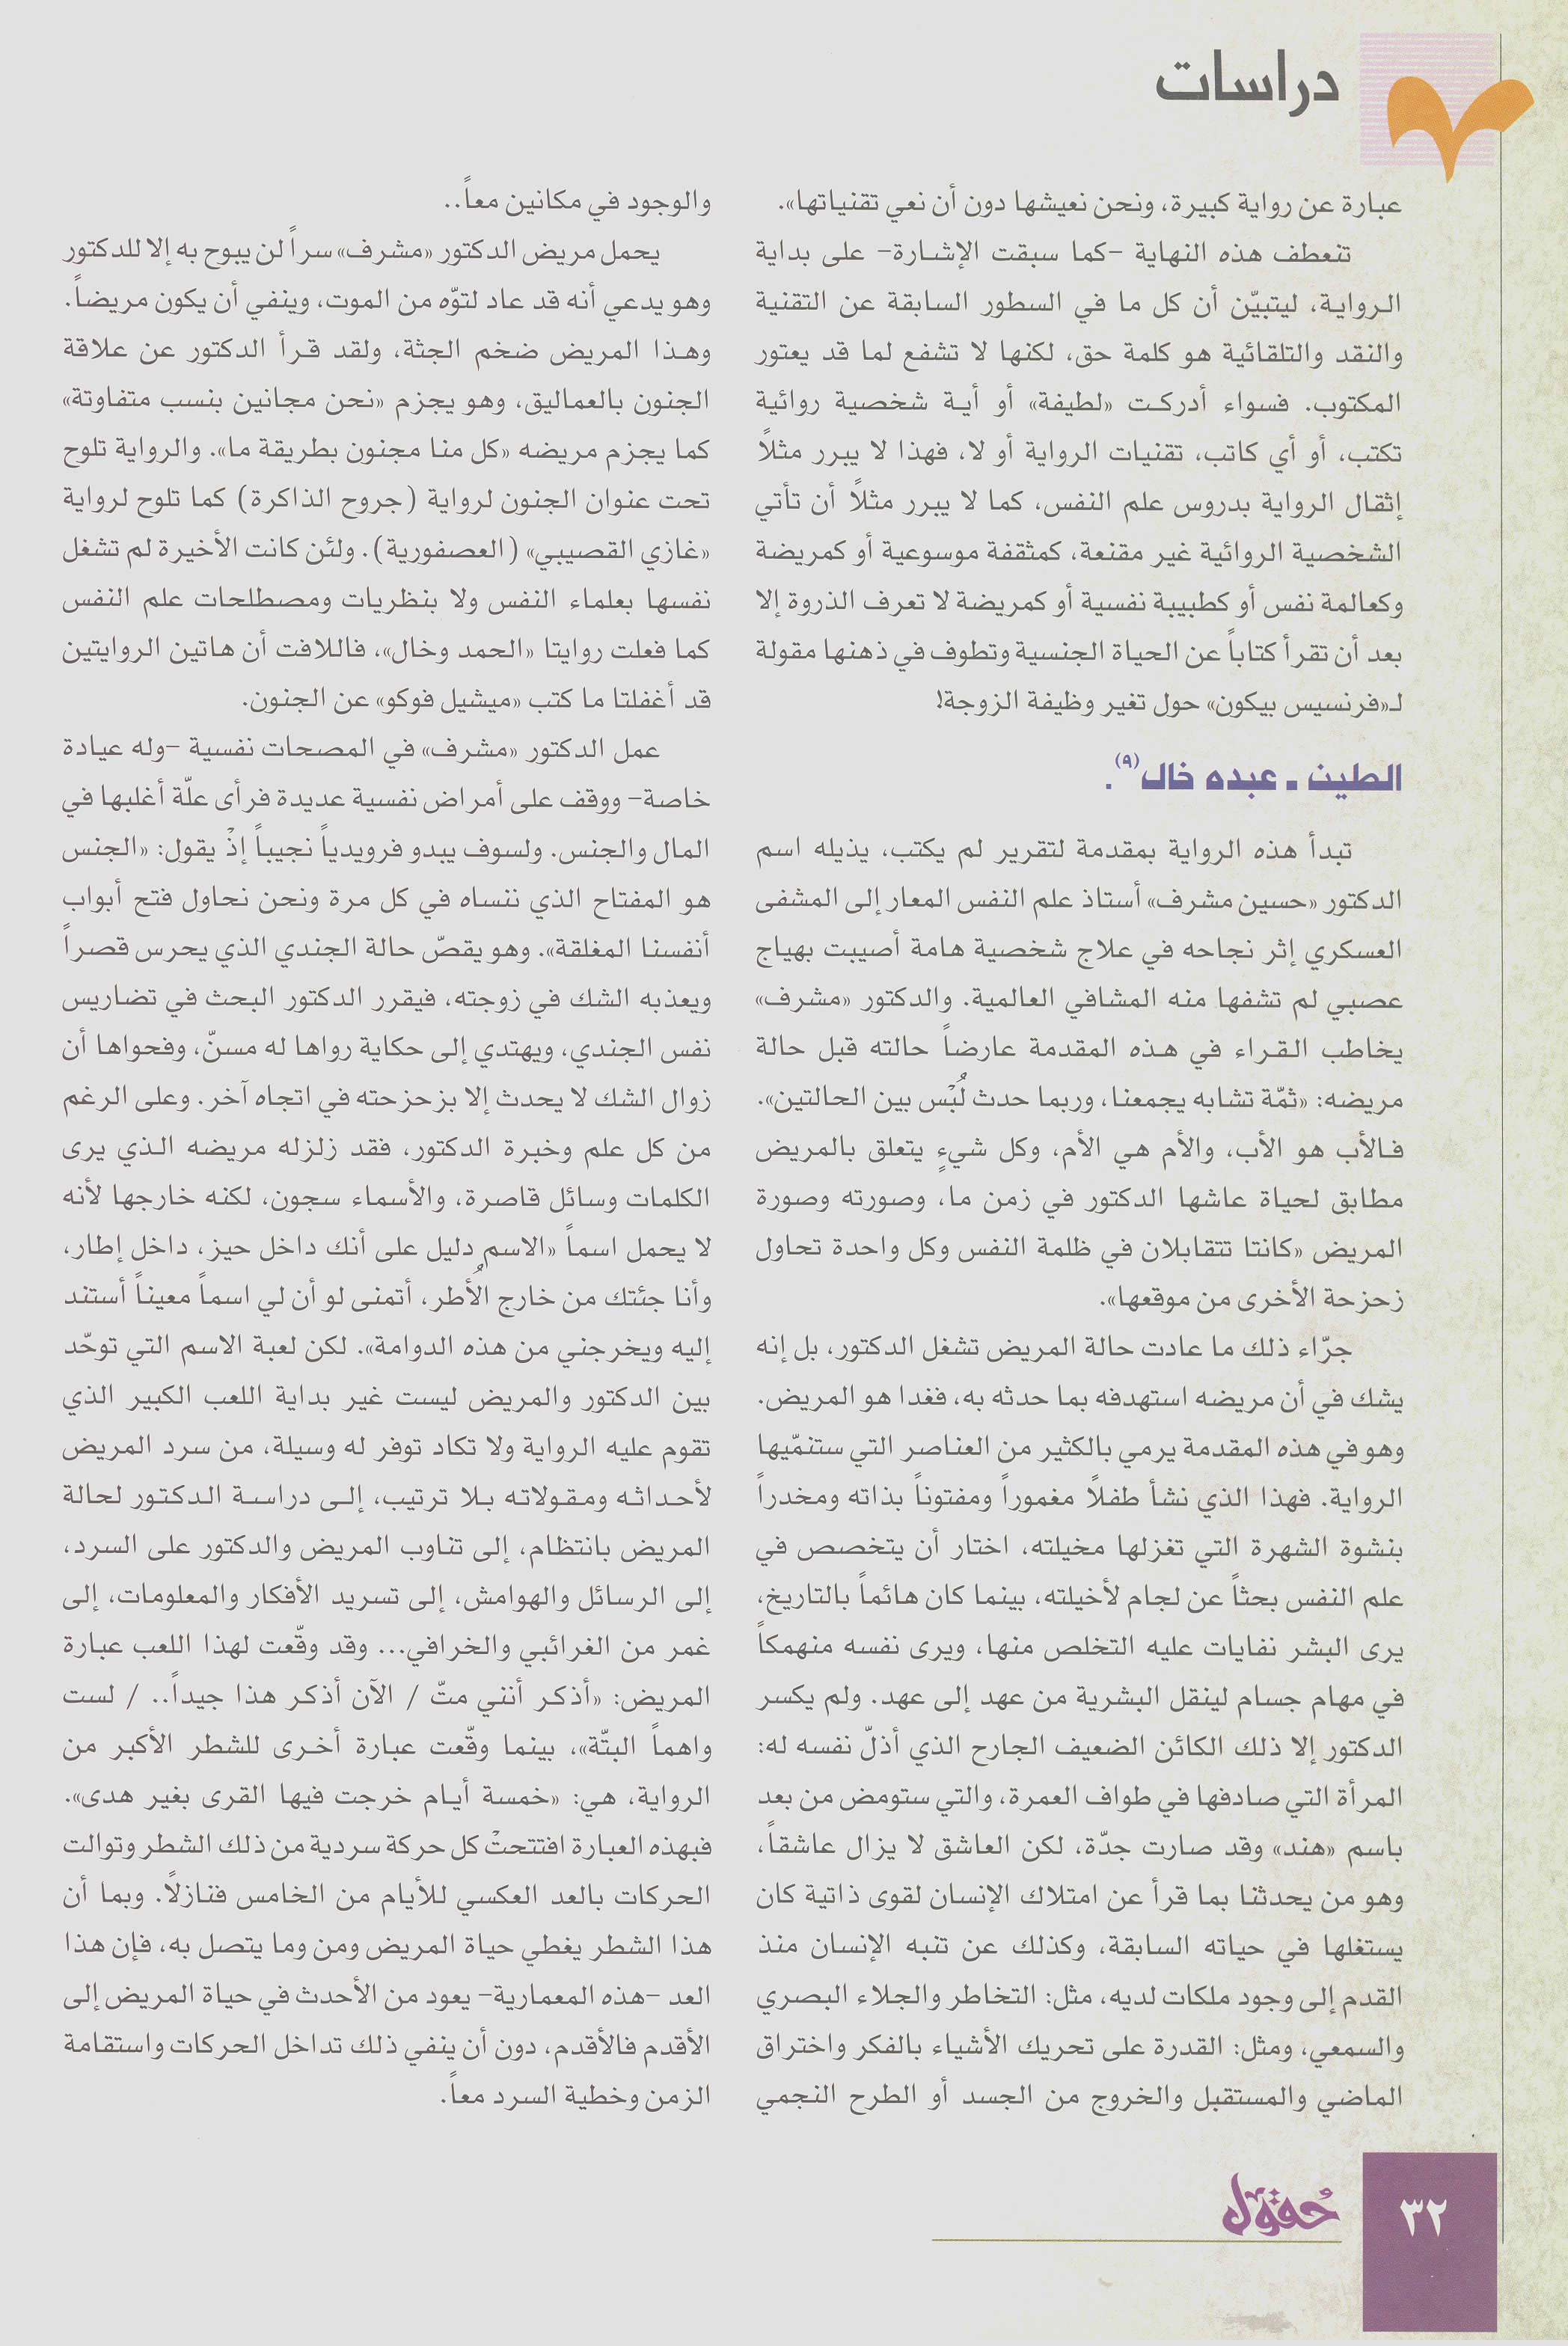 دراسات
عبارة عن رواية كبيرة، ونحن نعيشها دون أن نعي تقنياتها».
تنعطف هذه النهاية –كما سبقت الإشارة– على بداية
الرواية، ليتبيّن أن كل ما في السطور السابقة عن التقنية
والنقد والتلقائية هو كلمة حق، لكنها لا تشفع لما قد يعتور
المكتوب. فسواء أدركت «لطيفة» أو أية شخصية روائية
تكتب، أو أي كاتب، تقنيات الرواية أو لا، فهذا لا يبرر مثلاً
إثقال الرواية بدروس علم النفس، كما لا يبرر مثلاً أن تأتي
الشخصية الروائية غير مقنعة، كمثقفة موسوعية أو كمريضة
وكعالمة نفس أو كطبيبة نفسية أو كمريضة لا تعرف الذروة إلا
بعد أن تقرأ كتاباً عن الحياة الجنسية وتطوف في ذهنها مقولة
لـ«فرنسيس بيكون» حول تغير وظيفة الزوجة!
الطين ـ عبده خال(٩).
تبدأ هذه الرواية بمقدمة لتقرير لم يكتب، يذيله اسم
الدكتور «حسين مشرف» أستاذ علم النفس المعار إلى المشفى
العسكري إثر نجاحه في علاج شخصية هامة أصيبت بهياج
عصبي لم تشفها منه المشافي العالمية. والدكتور «مشرف»
يخاطب القراء في هذه المقدمة عارضاً حالته قبل حالة
مريضه: «ثمّة تشابه يجمعنا، وربما حدث لُبْس بين الحالتين».
فالأب هو الأب، والأم هي الأم، وكل شيءٍ يتعلق بالمريض
مطابق لحياة عاشها الدكتور في زمن ما، وصورته وصورة
المريض «كانتا تتقابلان في ظلمة النفس وكل واحدة تحاول
زحزحة الأخرى من موقعها».
جرّاء ذلك ما عادت حالة المريض تشغل الدكتور، بل إنه
يشك في أن مريضه استهدفه بما حدثه به، فغدا هو المريض.
وهو في هذه المقدمة يرمي بالكثير من العناصر التي ستنمّيها
الرواية. فهذا الذي نشأ طفلاً مغموراً ومفتوناً بذاته ومخدراً
بنشوة الشهرة التي تغزلها مخيلته، اختار أن يتخصص في
علم النفس بحثاً عن لجام لأخيلته، بينما كان هائماً بالتاريخ،
يرى البشر نفايات عليه التخلص منها، ويرى نفسه منهمكاً
في مهام جسام لينقل البشرية من عهد إلى عهد. ولم يكسر
الدكتور إلا ذلك الكائن الضعيف الجارح الذي أذلّ نفسه له:
المرأة التي صادفها في طواف العمرة، والتي ستومض من بعد
باسم «هند» وقد صارت جدّة، لكن العاشق لا يزال عاشقاً،
وهو من يحدثنا بما قرأ عن امتلاك الإنسان لقوى ذاتية كان
يستغلها في حياته السابقة، وكذلك عن تنبه الإنسان منذ
القدم إلى وجود ملكات لديه، مثل: التخاطر والجلاء البصري
والسمعي، ومثل: القدرة على تحريك الأشياء بالفكر واختراق
الماضي والمستقبل والخروج من الجسد أو الطرح النجمي
والوجود في مكانين معاً..
يحمل مريض الدكتور «مشرف» سراً لن يبوح به إلا للدكتور
وهو يدعي أنه قد عاد لتوّه من الموت، وينفي أن يكون مريضاً.
وهذا المريض ضخم الجثة، ولقد قرأ الدكتور عن علاقة
الجنون بالعماليق، وهو يجزم «نحن مجانين بنسب متفاوتة»
كما يجزم مريضه «كل منا مجنون بطريقة ما». والرواية تلوح
تحت عنوان الجنون لرواية (جروح الذاكرة) كما تلوح لرواية
«غازي القصيبي» (العصفورية). ولئن كانت الأخيرة لم تشغل
نفسها بعلماء النفس ولا بنظريات ومصطلحات علم النفس
كما فعلت روايتا «الحمد وخال»، فاللافت أن هاتين الروايتين
قد أغفلتا ما كتب «ميشيل فوكو» عن الجنون.
عمل الدكتور «مشرف» في المصحات نفسية –وله عيادة
خاصة– ووقف على أمراض نفسية عديدة فرأى علّة أغلبها في
المال والجنس. ولسوف يبدو فرويدياً نجيباً إذْ يقول: «الجنس
هو المفتاح الذي ننساه في كل مرة ونحن نحاول فتح أبواب
أنفسنا المغلقة». وهو يقصّ حالة الجندي الذي يحرس قصراً
ويعذبه الشك في زوجته، فيقرر الدكتور البحث في تضاريس
نفس الجندي، ويهتدي إلى حكاية رواها له مسنّ، وفحواها أن
زوال الشك لا يحدث إلا بزحزحته في اتجاه آخر. وعلى الرغم
من كل علم وخبرة الدكتور، فقد زلزله مريضه الذي يرى
الكلمات وسائل قاصرة، والأسماء سجون، لكنه خارجها لأنه
لا يحمل اسماً «الاسم دليل على أنك داخل حيز، داخل إطار،
وأنا جئتك من خارج الأُطر، أتمنى لو أن لي اسماً معيناً أستند
إليه ويخرجني من هذه الدوامة». لكن لعبة الاسم التي توحّد
بين الدكتور والمريض ليست غير بداية اللعب الكبير الذي
تقوم عليه الرواية ولا تكاد توفر له وسيلة، من سرد المريض
لأحداثه ومقولاته بلا ترتيب، إلى دراسة الدكتور لحالة
المريض بانتظام، إلى تناوب المريض والدكتور على السرد،
إلى الرسائل والهوامش، إلى تسريد الأفكار والمعلومات، إلى
غمر من الغرائبي والخرافي... وقد وقّعت لهذا اللعب عبارة
المريض: «أذكر أنني متّ / الآن أذكر هذا جيداً.. / لست
واهماً البتّة»، بينما وقّعت عبارة أخرى للشطر الأكبر من
الرواية، هي: «خمسة أيام خرجت فيها القرى بغير هدى».
فبهذه العبارة افتتحتْ كل حركة سردية من ذلك الشطر وتوالت
الحركات بالعد العكسي للأيام من الخامس فنازلاً. وبما أن
هذا الشطر يغطي حياة المريض ومن وما يتصل به، فإن هذا
العد –هذه المعمارية– يعود من الأحدث في حياة المريض إلى
الأقدم فالأقدم، دون أن ينفي ذلك تداخل الحركات واستقامة
الزمن وخطية السرد معاً.
حُقول
٣٢